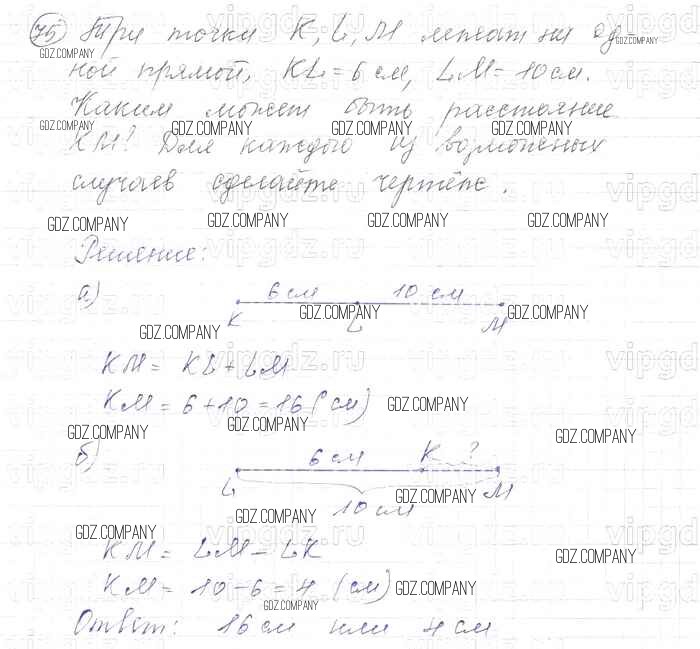 75) Три точки K, L, M лежат на од-
ной прямой, KL = 6 см, LM = 10 см.
Каким может быть расстояние
KM? Для каждого из возможных
случаев сделайте чертёж.
Решение:
а) 6 см 10 см
K L M
KM = KL + LM
KM = 6 + 10 = 16 (см)
б) 6 см K ?
L M
10 см
KM = LM - LK
KM = 10 - 6 = 4 (см)
Ответ: 16 см или 4 см